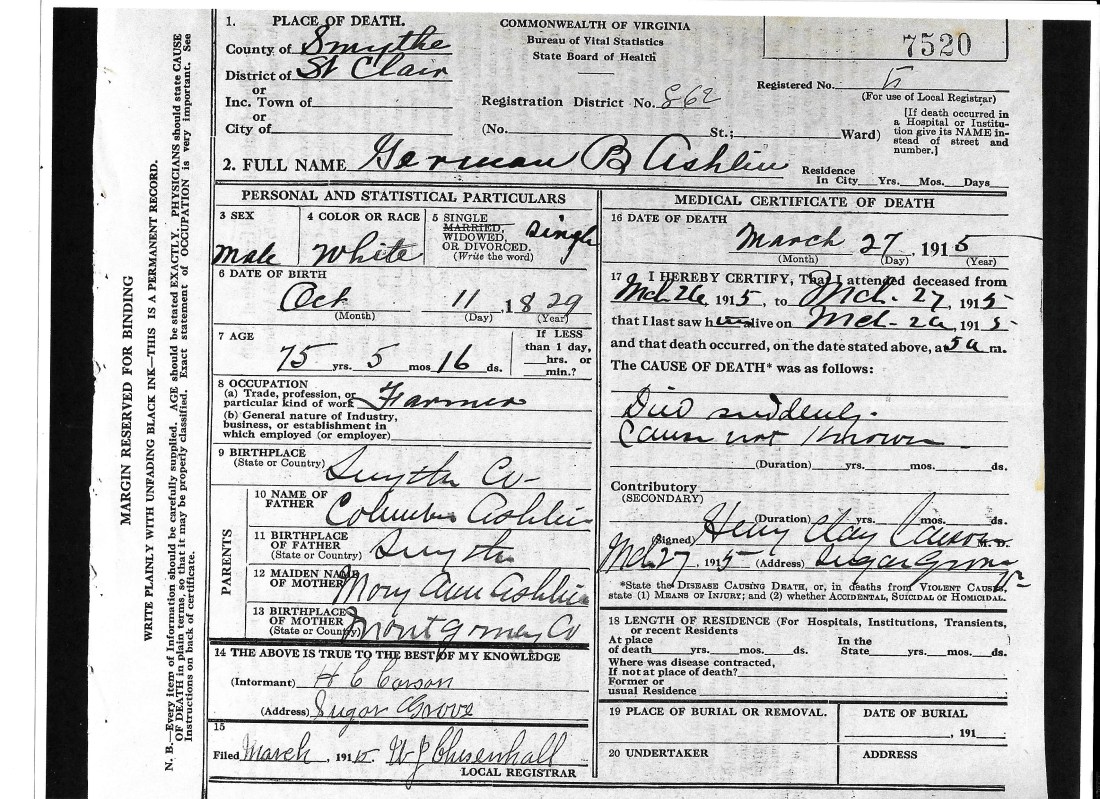 MARGIN RESERVED FOR BINDING
WRITE PLAINLY WITH UNFADING BLACK INK—THIS IS A PERMANENT RECORD.
N. B.—Every item of Information should be carefully supplied. AGE should be stated EXACTLY. PHYSICIANS should state CAUSE
OF DEATH in plain terms, so that it may be properly classified. Exact statement of OCCUPATION is very important. See
Instructions on back of certificate.
1. PLACE OF DEATH.
County of Smythe
District of St Clair
or
Inc. Town of
or
City of
COMMONWEALTH OF VIRGINIA
Bureau of Vital Statistics
State Board of Health
Registration District No. 862
(No. St.; Ward)
7520
Registered No. 5
(For use of Local Registrar)
[If death occurred in
a Hospital or Institu-
tion give its NAME in-
stead of street and
number.]
2. FULL NAME German B Ashlin
Residence
In City Yrs. Mos. Days
PERSONAL AND STATISTICAL PARTICULARS
3 SEX
Male
4 COLOR OR RACE
White
5 SINGLE
MARRIED,
WIDOWED,
OR DIVORCED.
(Write the word)
Single
6 DATE OF BIRTH
Oct 11, 1829
(Month) (Day) (Year)
7 AGE
75 yrs. 5 mos 16 ds.
If LESS
than 1 day,
hrs. or
min.?
8 OCCUPATION
(a) Trade, profession, or
particular kind of work Farmer
(b) General nature of Industry,
business, or establishment in
which employed (or employer)
9 BIRTHPLACE
(State or Country) Smythe Co
PARENTS
10 NAME OF
FATHER Columbus Ashlin
11 BIRTHPLACE
OF FATHER
(State or Country) Smythe
12 MAIDEN NAME
OF MOTHER Mary Ann Ashlin
13 BIRTHPLACE
OF MOTHER
(State or Country) Montgomery Co
14 THE ABOVE IS TRUE TO THE BEST OF MY KNOWLEDGE
(Informant) H C Carson
(Address) Sugar Grove
15
Filed March, 191 5.
LOCAL REGISTRAR
MEDICAL CERTIFICATE OF DEATH
16 DATE OF DEATH
March 27, 1915
(Month) (Day) (Year)
17 I HEREBY CERTIFY, That I attended deceased from
Mch 26, 1915, to Mch. 27, 1915
that I last saw h alive on Mch- 1915
and that death occurred, on the date stated above, a 5 a m.
The CAUSE OF DEATH* was as follows:
Died suddenly.
Cause not Known
(Duration) yrs. mos. ds.
Contributory
(SECONDARY)
(Duration) yrs. mos. ds.
(Signed) Henry Clay Carson M. D.
Mch 27, 1915 (Address) Sugar Grove
*State the DISEASE CAUSING DEATH, or, in deaths from VIOLENT CAUSES,
state (1) MEANS OF INJURY; and (2) whether ACCIDENTAL, SUICIDAL or HOMICIDAL.
18 LENGTH OF RESIDENCE (For Hospitals, Institutions, Transients,
or recent Residents
At place In the
of death yrs. mos. ds. State yrs. mos. ds.
Where was disease contracted,
If not at place of death?
Former or
usual Residence
19 PLACE OF BURIAL OR REMOVAL.
DATE OF BURIAL
, 191
20 UNDERTAKER
ADDRESS